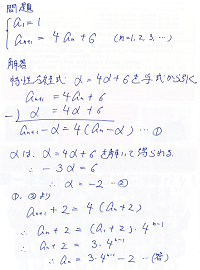 問題
{ a₁ = 1
aₙ₊₁ = 4aₙ + 6 (n=1, 2, 3, …)
解答
特性方程式 α = 4α + 6 を与式から引く
aₙ₊₁ = 4aₙ + 6
-) α = 4α + 6
aₙ₊₁ - α = 4(aₙ - α) … ①
αは、α = 4α + 6 を解いて得られる
∴ -3α = 6
∴ α = -2 … ②
①, ② より
aₙ₊₁ + 2 = 4(aₙ + 2)
∴ aₙ + 2 = (a₁ + 2)・4ⁿ⁻¹
∴ aₙ + 2 = 3・4ⁿ⁻¹
∴ aₙ = 3・4ⁿ⁻¹ - 2 … (答)